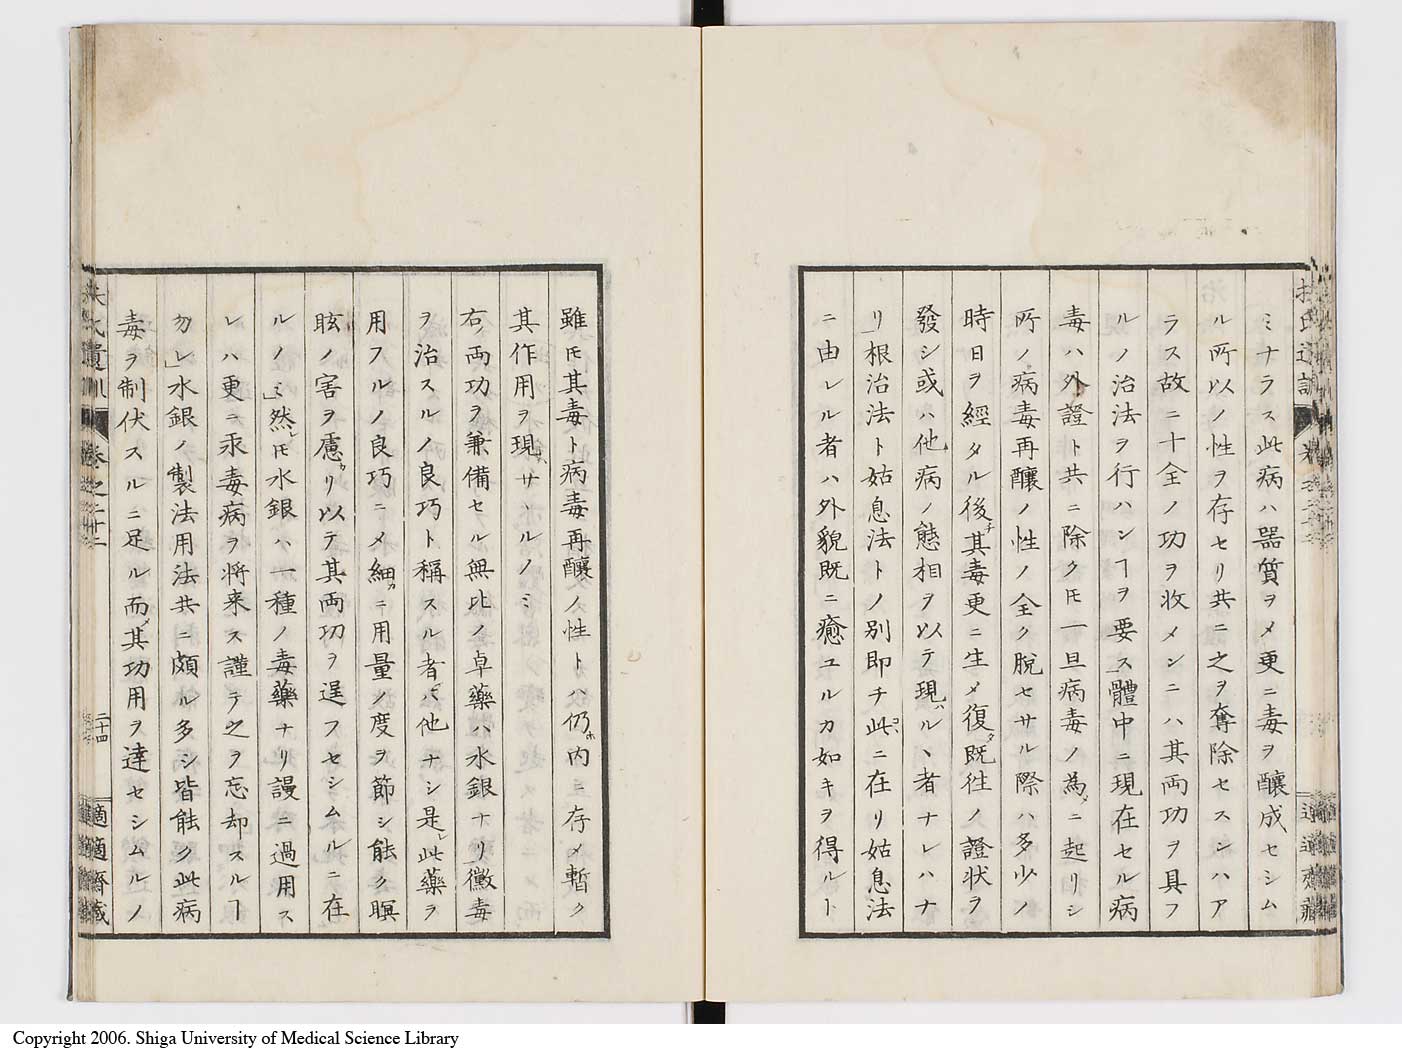 ミナラス此病ハ器質ヲメ更ニ毒ヲ釀成セシム
ル所以ノ性ヲ存セリ共ニ之ヲ奪除セスンハア
ラス故ニ十全ノ功ヲ收メンニハ其両功ヲ具フ
ルノ治法ヲ行ハンヿヲ要ス」體中ニ現在セル病
毒ハ外證ト共ニ除クㇳモ一旦病毒ノ為メニ起リシ
所ノ病毒再釀ノ性ノ全ク脱セサル際ハ多少ノ
時日ヲ經タル後チ其毒更ニ生メ復タ既徃ノ證状ヲ
發シ或ハ他病ノ態相ヲ以テ現ハルヽ者ナレハナ
リ」根治法ト姑息法トノ別即チ此コニ在リ姑息法
ニ由レル者ハ外貌既ニ癒ユルカ如キヲ得ルト
雖ㇳモ其毒ト病毒再釀ノ性トハ仍ホ内ニ存メ暫ク
其作用ヲ現ハサヽルノミ
右ノ両功ヲ兼備セル無比ノ卓藥ハ水銀ナリ」黴毒
ヲ治スルノ良巧ト稱スル者ハ他ナシ是レ此藥ヲ
用フルノ良巧ニメ細カニ用量ノ度ヲ節シ能ク瞑
眩ノ害ヲ慮カリ以テ其両功ヲ逞フセシムルニ在
ルノミ」然レㇳモ水銀ハ一種ノ毒藥ナリ謾ニ過用ス
レハ更ニ汞毒病ヲ将来ス謹テ之ヲ忘却スルヿ
勿レ」水銀ノ製法用法共ニ頗ル多シ皆能ク此病
毒ヲ制伏スルニ足ル而メ其功用ヲ達セシムルノ
扶氏遺訓
卷之二十二
二十四
適適齋藏